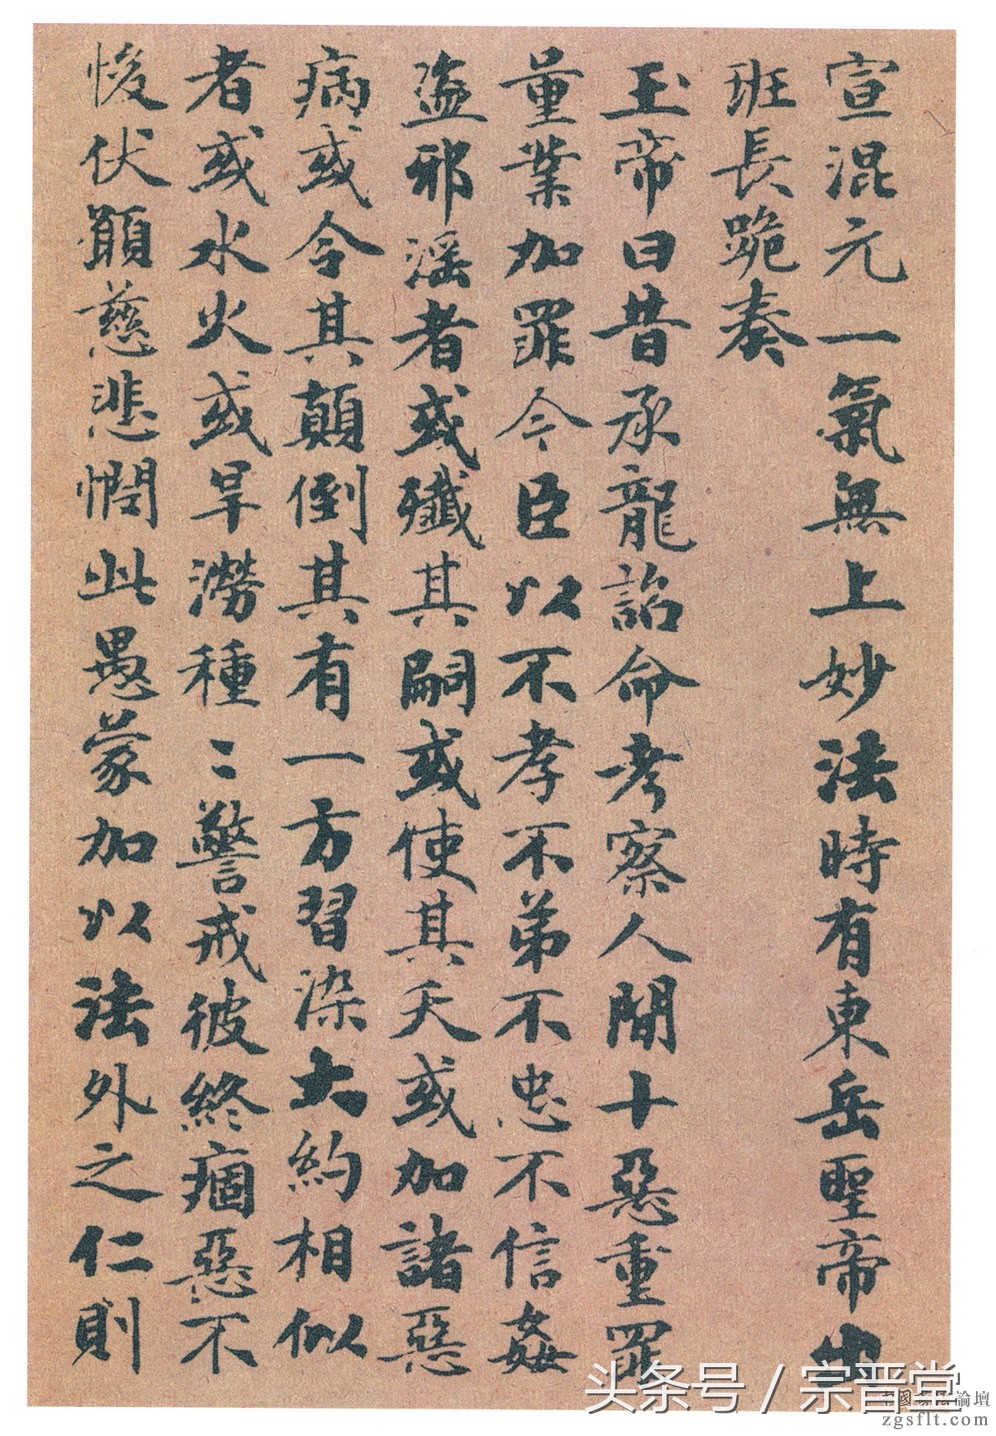 宣混元一氣無上妙法時有東岳聖帝出
班長跪奏
玉帝曰昔承龍詔命考察人間十惡重罪
量業加罪今臣以不孝不弟不忠不信姦
盜邪淫者或殲其嗣或使其夭或加諸惡
病或令其顛倒其有一方習染大約相似
者或水火或旱澇種〻警戒彼終痼惡不
悛伏願慈悲憫此愚蒙加以法外之仁則
头条号 / 宗晋堂
中國書法論壇
zgsflt.com